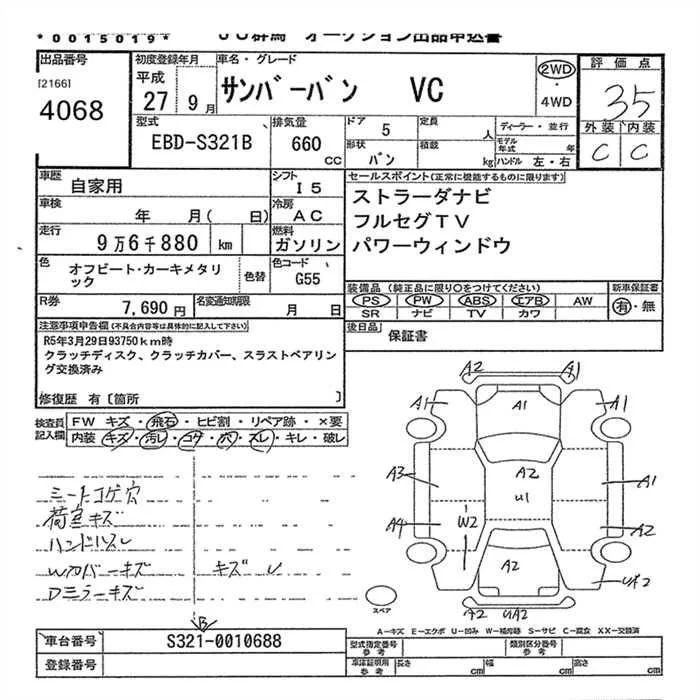 *0015019*
ＪＵ群馬 オークション出品申込書
出品番号
[2166]
4068
初度登録年月
平成
27 9月
車名・グレード
サンバーバン VC
2WD
・
4WD
評価点
35
外装 内装
C C
型式
EBD-S321B
排気量
660
cc
ドア 5
形状 バン
定員 人
積載 kg
ディーラー・並行
モデル年式 年
ハンドル 左・右
車歴 自家用
シフト I5
車検 年 月( 日)
冷房 AC
走行 9万6千880 km
燃料 ガソリン
色 オフビート・カーキメタリック
色替
色コード G55
R券 7,690円
名変通知期限 月 日
セールスポイント(正常に機能するものに限ります)
ストラーダナビ
フルセグTV
パワーウィンドウ
装備品(純正品に限り○をつけてください)
PS PW ABS エアB AW
SR ナビ TV カワ
新車保証書
有・無
後日品 保証書
注意事項申告欄(不具合内容等は具体的に記入して下さい)
R5年3月29日93750km時
クラッチディスク、クラッチカバー、スラストベアリン
グ交換済み
修復歴 有〔箇所 〕
検査員
記入欄
FW キズ・飛石・ヒビ割・リペア跡・×要
内装 キズ・汚レ・コゲ・穴・スレ・キレ・破レ
シートコゲ穴
荷室キズ
ハンドルスレ
Wカバーキズ キズ レ
Dミラーキズ
B
A2 A1
A1 A1 A1
A3 A2 A1
U1
A4 W2 A2
A2 UA2
A2 UA2
スペア
A-キズ E-エクボ U-凹み W-補修跡 S-サビ C-腐食 XX-交換済
車台番号 S321-0010688
登録番号
型式指定番号
参考
類別区分番号
参考
車庫証明用
参考
長さ cm 幅 cm 高さ cm